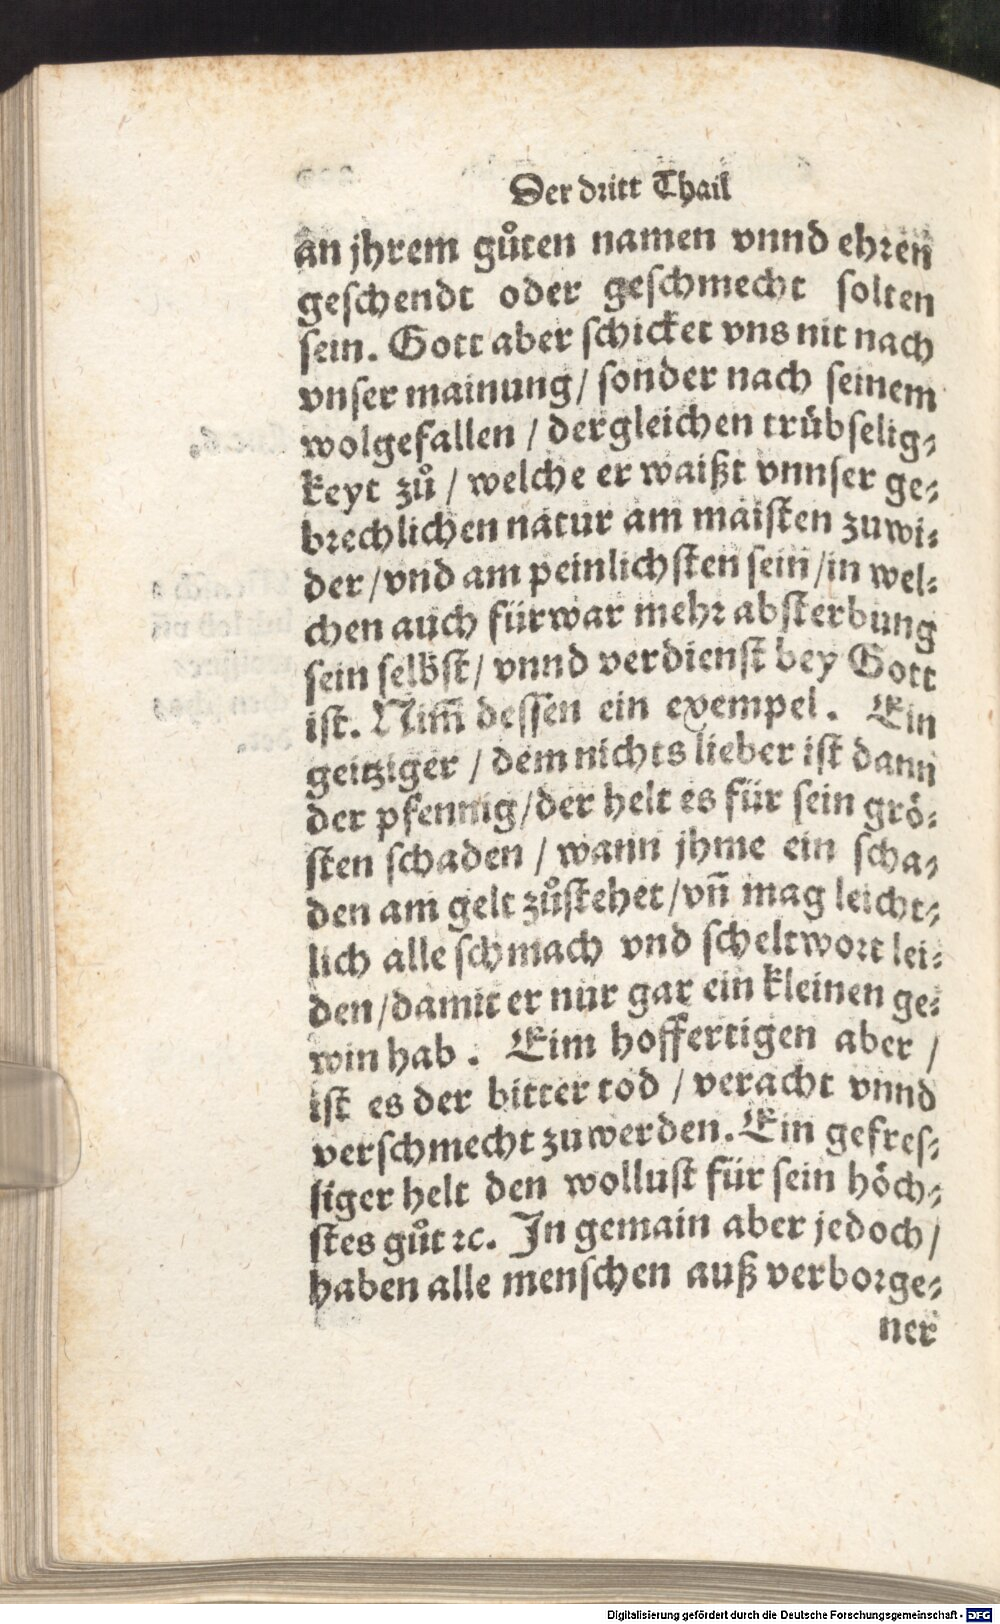 Der dritt Thail
an jhrem gůten namen vnnd ehren
geschendt oder geschmecht solten
sein. Gott aber schicket vns nit nach
vnser mainung / sonder nach seinem
wolgefallen / dergleichen trübselig⸗
keyt zů / welche er waißt vnnser ge⸗
brechlichen natur am maisten zuwi⸗
der / vnd am peinlichsten sein / in wel⸗
chen auch fürwar mehr absterbung
sein selbst / vnnd verdienst bey Gott
ist. Nim̃ dessen ein exempel. Ein
geitziger / dem nichts lieber ist dann
der pfennig / der helt es für sein grö⸗
sten schaden / wann jhme ein scha⸗
den am gelt zůstehet / vn̄ mag leicht⸗
lich alle schmach vnd scheltwort lei⸗
den / damit er nur gar ein kleinen ge⸗
win hab. Eim hoffertigen aber /
ist es der bitter tod / veracht vnnd
verschmecht zuwerden. Ein gefres⸗
siger helt den wollust für sein höch⸗
stes gůt ꝛc. In gemain aber jedoch /
haben alle menschen auß verborge⸗
ner
Digitalisierung gefördert durch die Deutsche Forschungsgemeinschaft - DFG